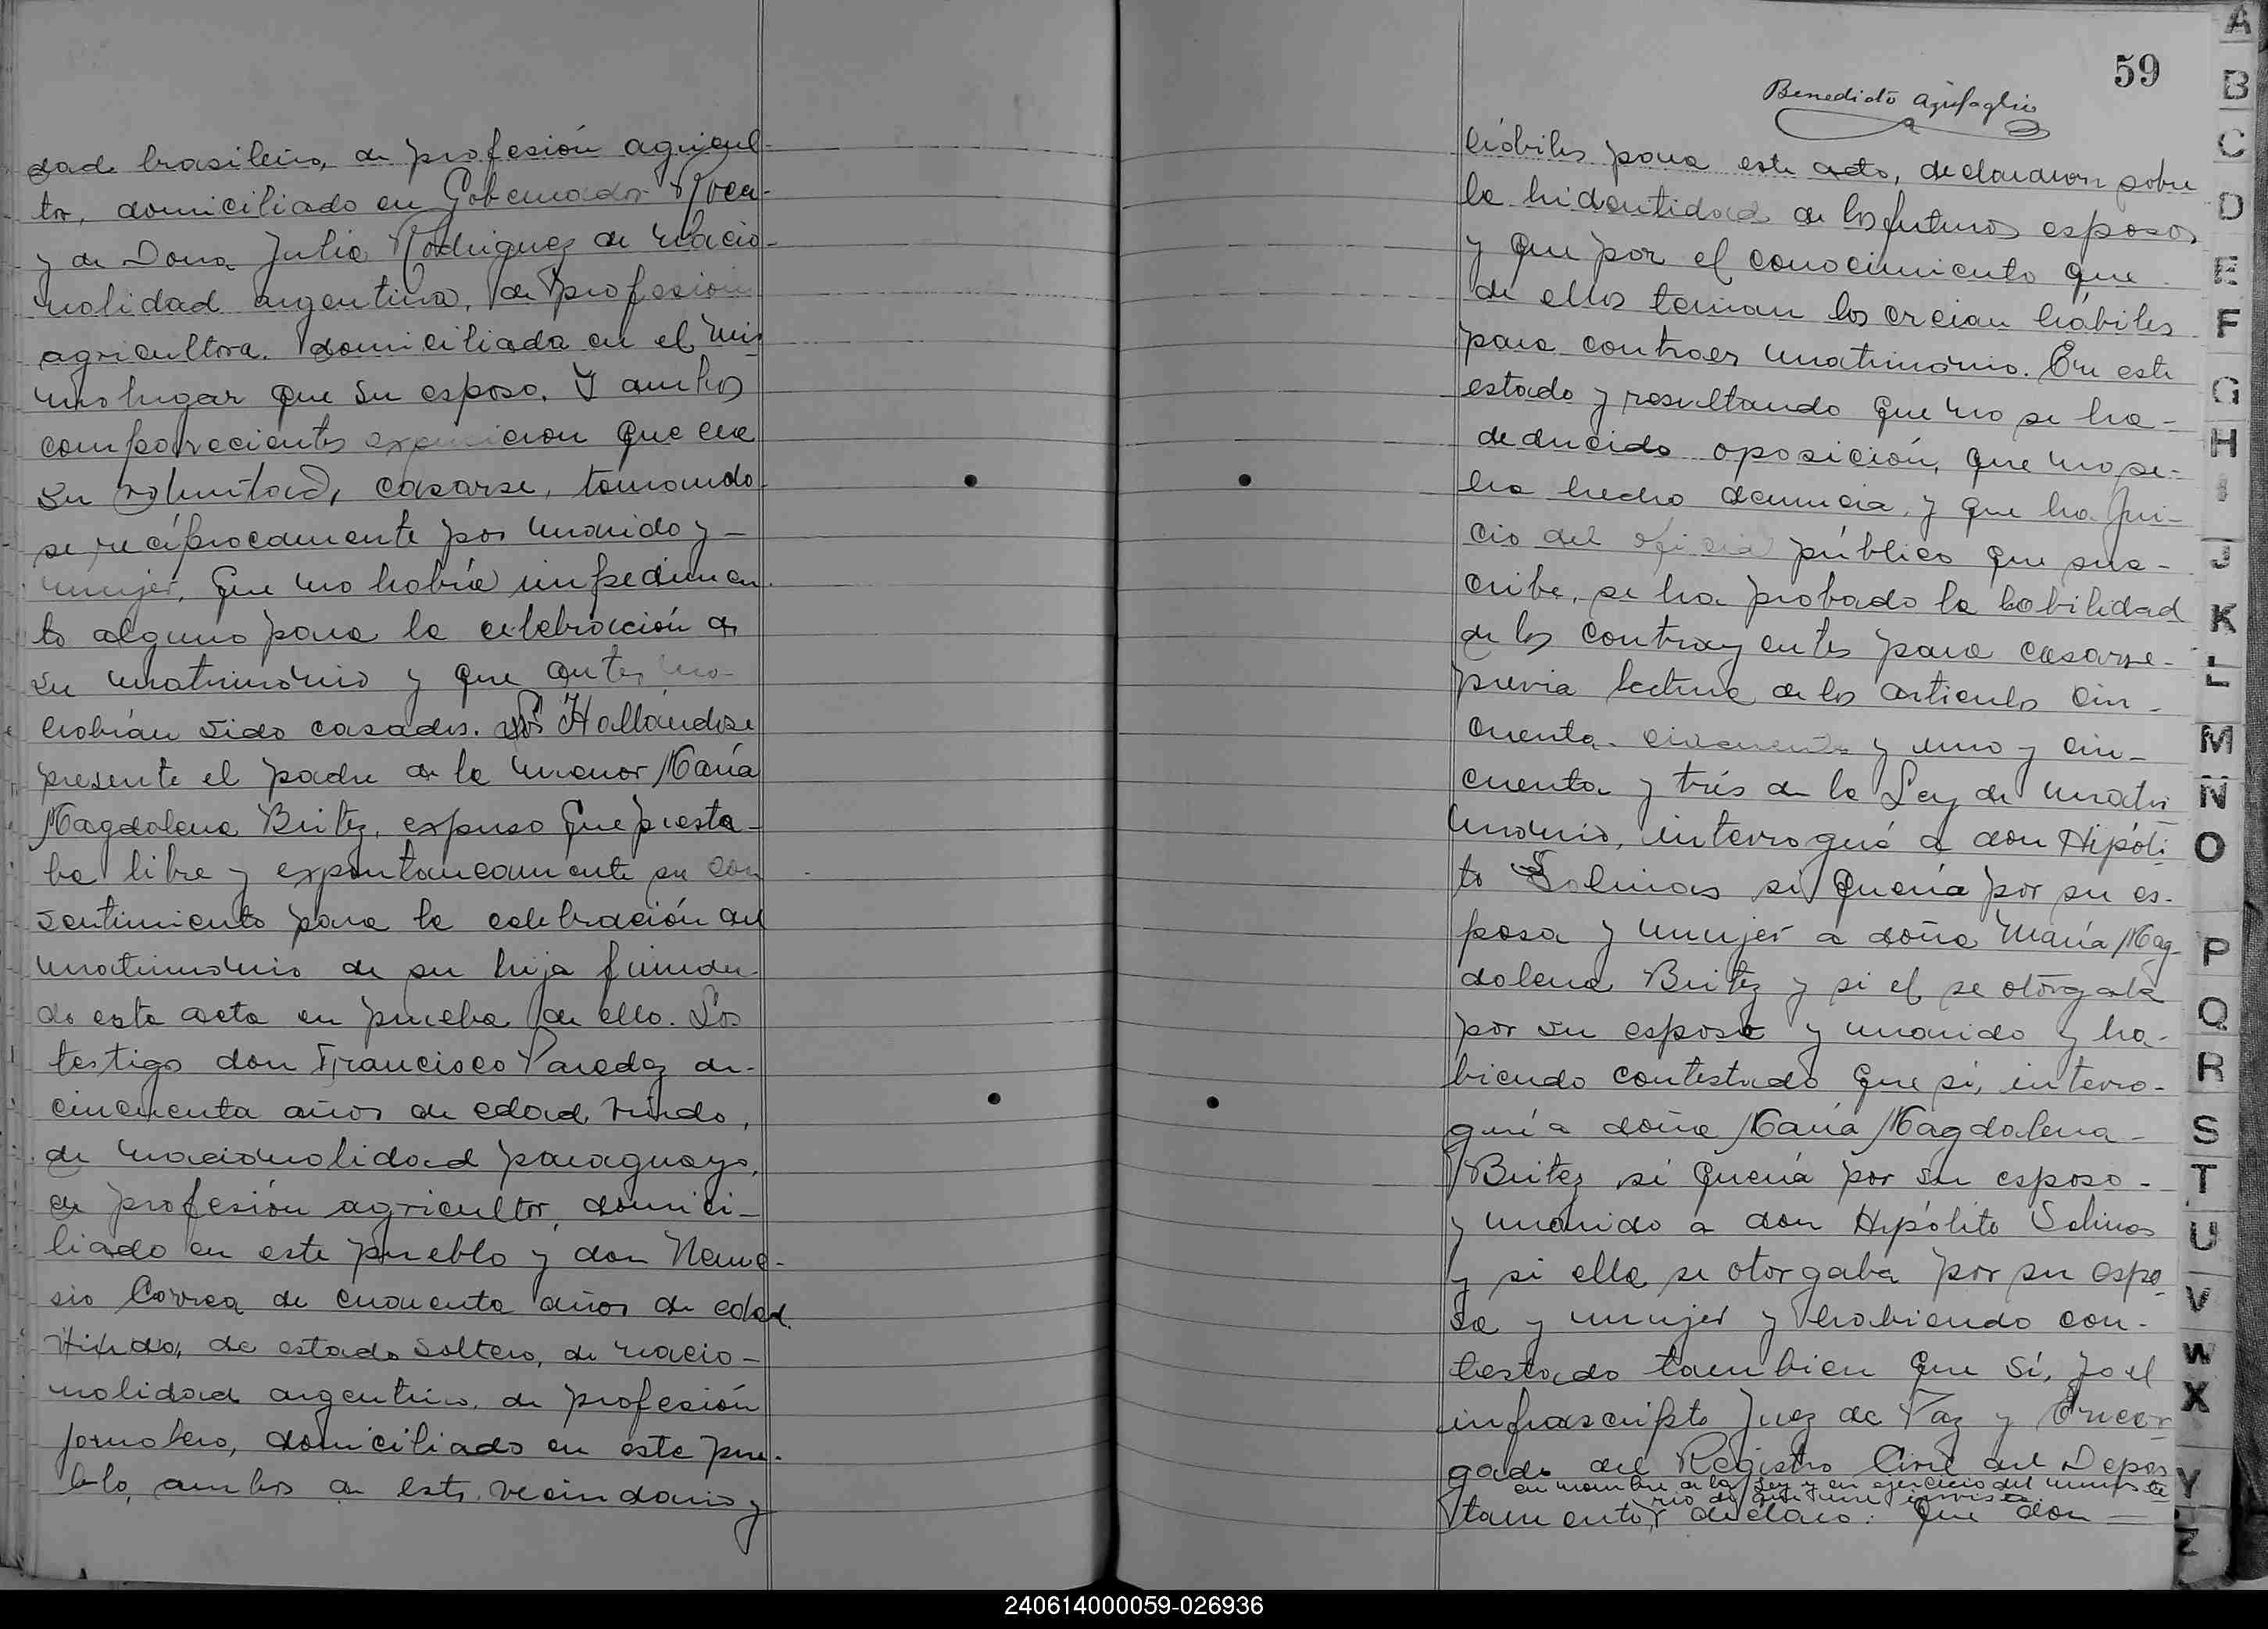 dad brasilero, de profesión agricul-
tor, domiciliado en Gobernador Roca-
y de Dona Julia Rodriguez de nacio-
nalidad argentina, de profesion
agricultora. domiciliada en el mis
mo lugar que su esposo. Y ambos
comparecientes que era
su voluntad, casarse, tomando
se recíprocamente por marido y -
mujer, que no habría impedimen
to alguno para la celebración de
su matrimónio y que antes no-
habían sido casados. Hallandose
presente el padre de la menor María
Magdalena Britez, expuso que presta-
ba libre y expontaneamente su con
sentimiento para la celebración del
matrimónio de su hija firman-
do esta acta en prueba de ello. Los
testigo don Francisco Paredez de-
cincuenta años de edad, viudo,
de nacionalidad paraguayo,
de profesión agricultor, domici-
liado en este pueblo y don Neme-
sio Correa de cuarenta años de edad.
de estado soltero, de nacio-
nalidad argentino. de profesión
jornalero, domiciliado en este pue-
blo, ambos de este vecindario y
59
Benedicto
hábiles para este acto, declararon sobre
la hidentidad de los futuros esposos
y que por el conocimiento que
de ellos tenian los creian hábiles
para contraer matrimónio. En este
estado y resultando que no se ha-
deducido oposición, que no se-
ha hecho denuncia, y que ha jui-
cio del oficial público que sus-
cribe, se ha probado la habilidad
de los contrayentes para casarse-
previa lectura de los articulos cin-
cuenta- cincuenta y uno y cin-
cuenta y trés de la Ley de matri
mónio, interrogué a don Hipóli
to Salinas si quería por su es-
posa y mujer a doña María Mag-
dalena Britez y si el se otorgaba
por su esposo y marido y ha-
biendo contestado que si, interro-
gué a doña María Magdalena-
Britez si quería por su esposo-
y marido a don Hipólito Salinas
y si ella se otorgaba por su espo
sa y mujer y habiendo con-
testado tambien que Sí, yo el
infrascripto Juez de Paz y Encar
gado del Registro Civil del Depar
en nombre de la Ley y en ejercicio del ministe
rio de que me
tamento, declaro: Que don —
240614000059-026936